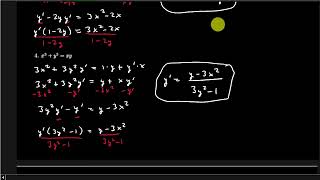 y' - 2y y' = 3x² - 2x
y'(1-2y) = 3x²-2x
1-2y 1-2y
4. x³ + y³ = xy
3x² + 3y² y' = 1·y + y'·x
3x² + 3y² y' = y + x y'
-3x² -y' -y' -3x²
3y² y' - y' = y - 3x²
y'(3y²-1) = y-3x²
3y²-1 3y²-1
y' = y-3x²
3y²-1